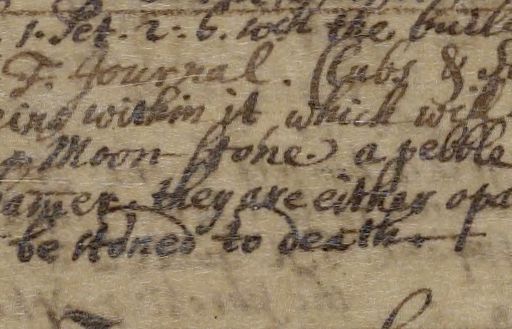 1. Pet. 2. 6. wch the buil
F. Journal. Clubs &
eing within it, which wch
Moon-stone. a pebble
they are either opa
be stoned to death.